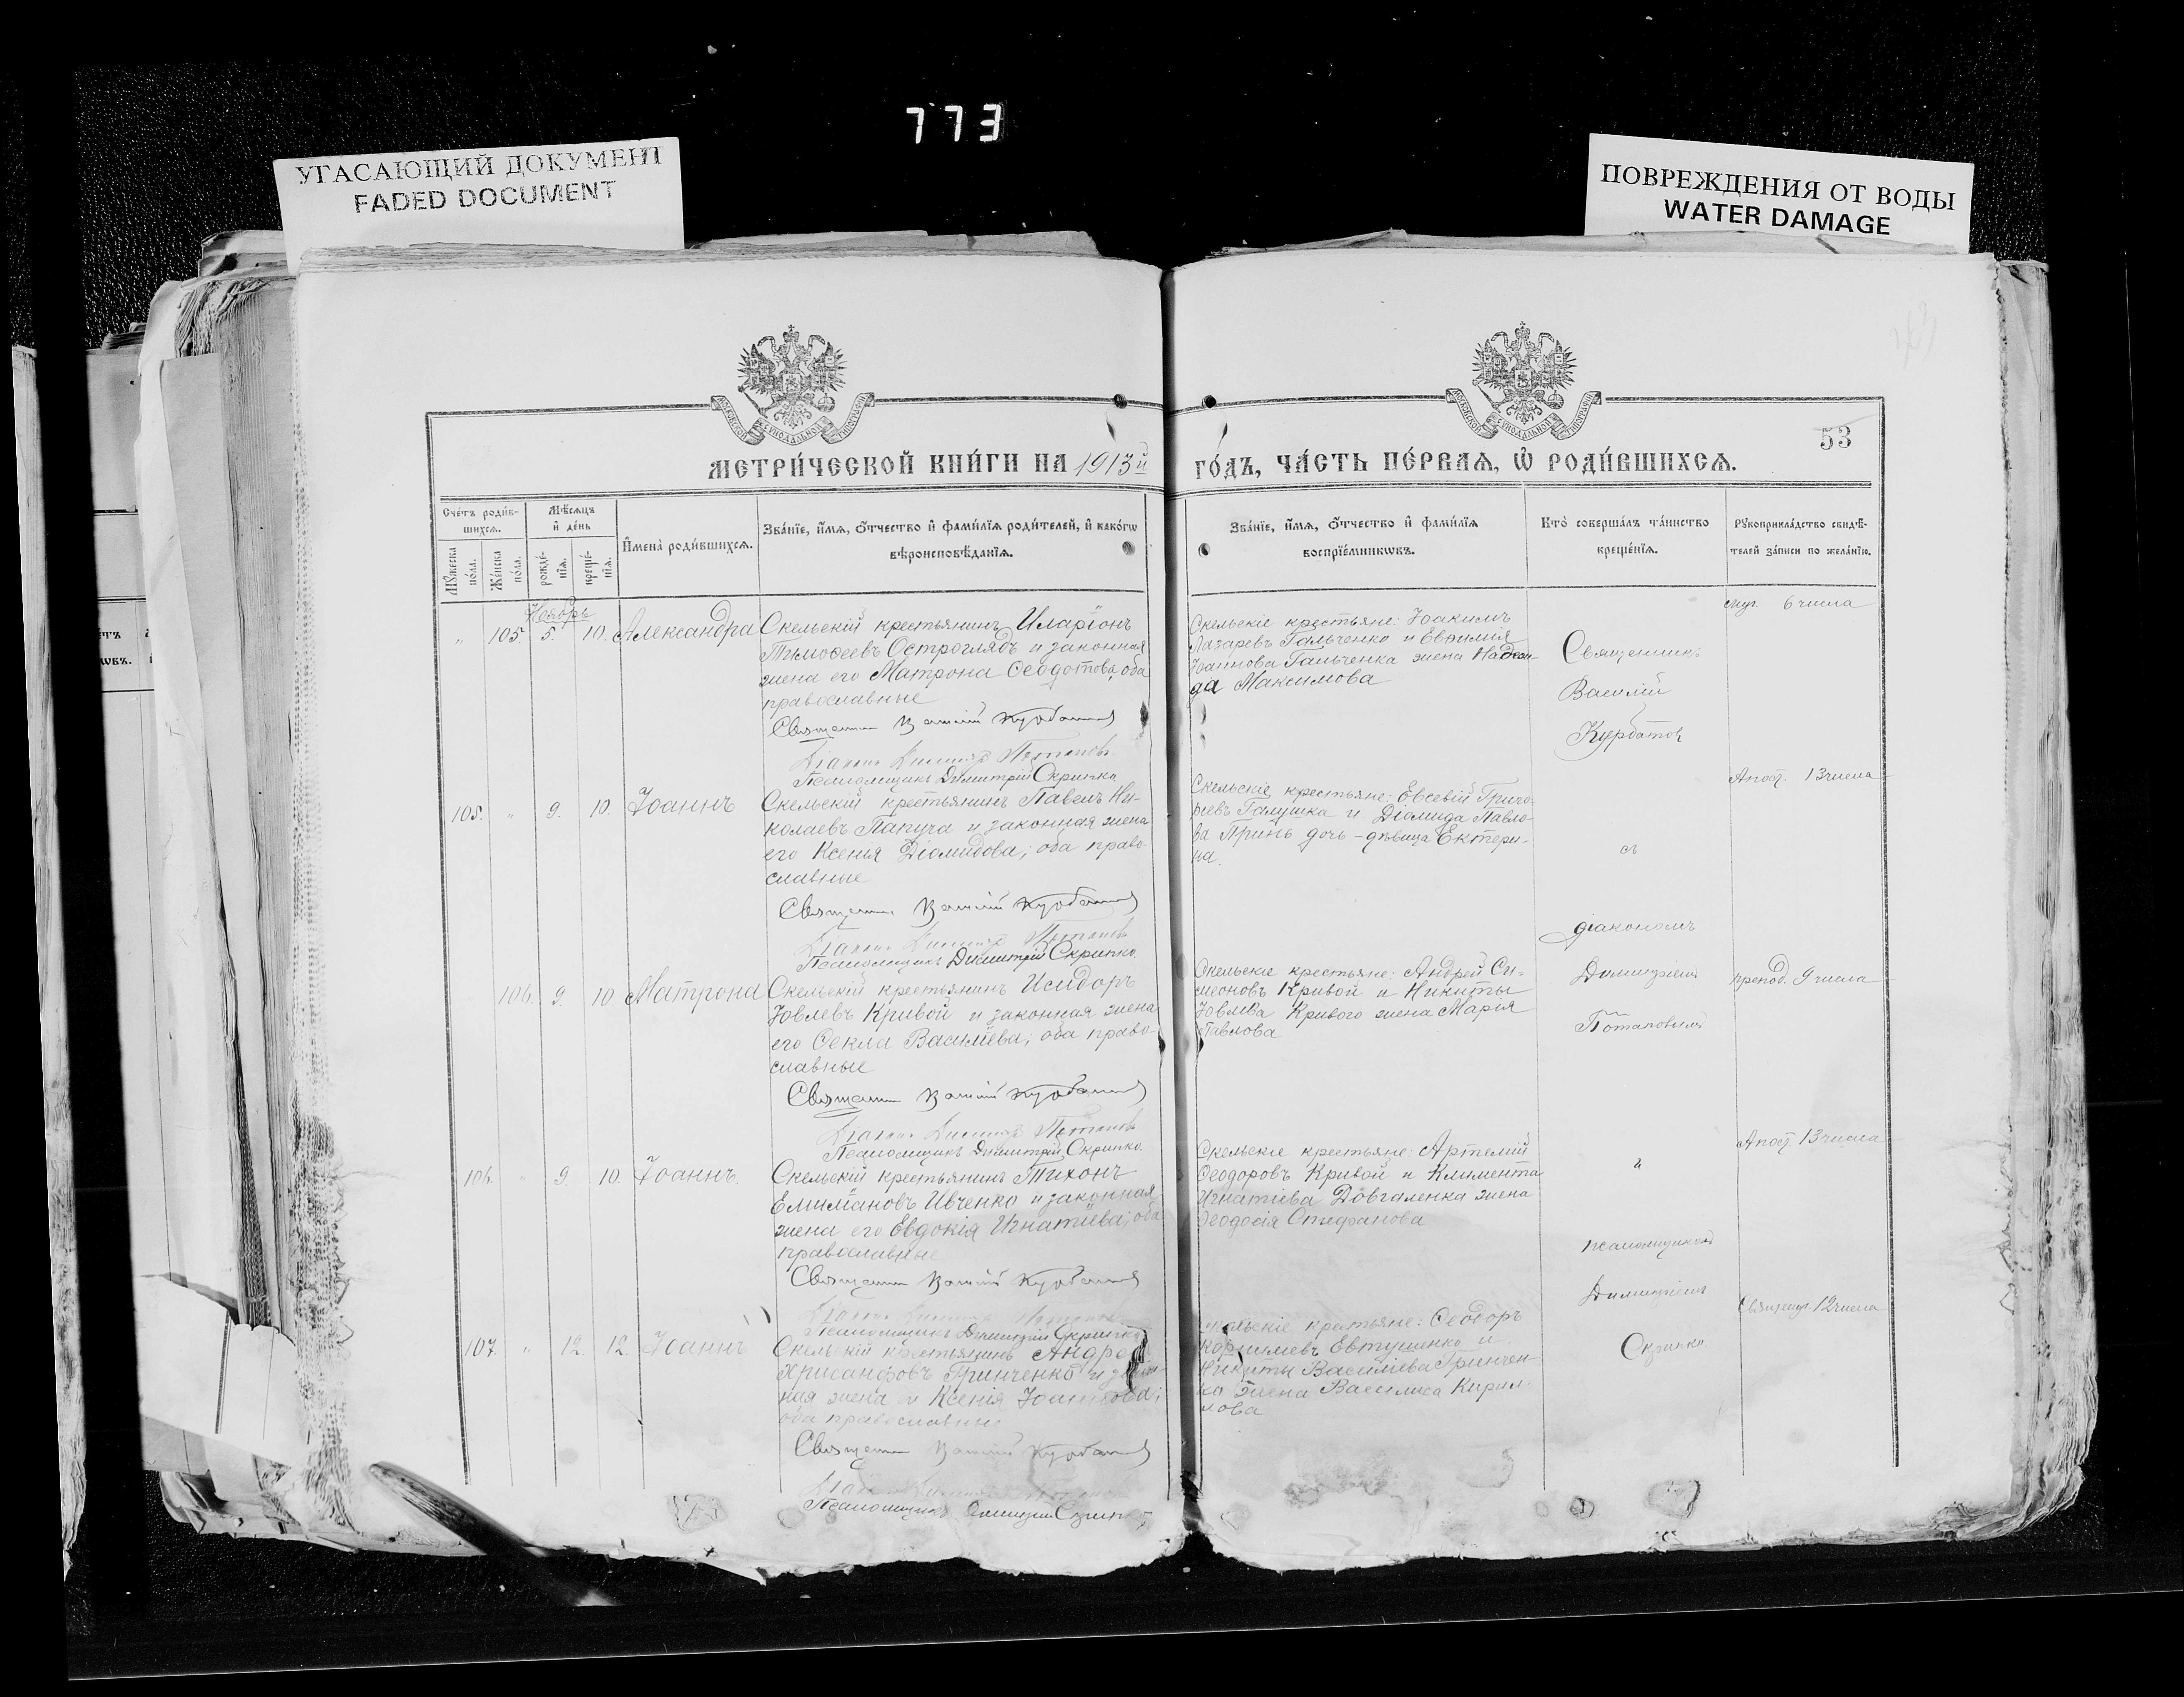 773
УГАСАЮЩИЙ ДОКУМЕНТ
FADED DOCUMENT
ПОВРЕЖДЕНИЯ ОТ ВОДЫ
WATER DAMAGE
53
МЕТРИ́ЧЕСКОЙ КНИ́ГИ НА 1913й
ГО́ДЪ, ЧА́СТЬ ПЕ́РВАЯ, Ѽ РОДИ́ВШИХСЯ.
Сче́тъ роди́в-
шихся.
Мꙋ́жеска по́ла.
Же́нска по́ла.
Мѣ́сяцъ и де́нь
рожде́-нїя.
креще́-нїя.
Имена̀ роди́вшихся.
Зва́нїе, и́мя, ѻ́тчество и фами́лїя роди́телей, и како́гѡ
вѣроисповѣ́данїя.
Зва́нїе, и́мя, ѻ́тчество и фами́лїя
воспрїе́мникѡвъ.
Кто̀ соверша́лъ та́инство
креще́нїя.
Рꙋкоприкла́дство свидѣ́-
телей за́писи по жела́нїю.
Ноябрь
" 105 5. 10. Александра
Скельскій крестьянинъ Иларіонъ
Тимоѳеевъ Остроглядъ и законная
жена его Матрона Ѳеодотова, оба
православные
Священникъ Василій Курбатовъ
Діаконъ Димитрій Потаповъ
Псаломщикъ Димитрій Скрипка
Скельскіе крестьяне: Іоакимъ
Лазаревъ Гальченко и Евѳимія
Іоаннова Гальченка жена Надеж-
да Максимова
6 числа
105. " 9. 10. Іоаннъ
Скельскій крестьянинъ Павелъ Ни-
колаевъ Папуча и законная жена
его Ксенія Діомидова; оба право-
славные
Священникъ Василій Курбатовъ
Діаконъ Димитрій Потаповъ
Псаломщикъ Димитрій Скрипко.
Скельскіе крестьяне: Евсевій Григо-
рьевъ Галушка и Діомида Павло-
ва Гринь дочь - дѣвица Ектери-
на.
Апост. 13 числа
106. 9. 10 Матрона
Скельскій крестьянинъ Исидоръ
Іовлевъ Кривой и законная жена
его Ѳекла Васильева; оба право-
славные
Священникъ Василій Курбатовъ
Діаконъ Димитрій Потаповъ
Псаломщикъ Димитрій Скрипко.
Скельскіе крестьяне: Андрей Си-
меоновъ Кривой и Никиты
Іовлева Кривого жена Марія
Павлова
препод. 9 числа
106. " 9. 10. Іоаннъ.
Скельскій крестьянинъ Тихонъ
Емиліановъ Ивченко и законная
жена его Евдокія Игнатіева; оба
православные
Священникъ Василій Курбатовъ
Діаконъ Димитрій Потаповъ
Псаломщикъ Димитрій Скрипко
Скельскіе крестьяне: Артемій
Ѳеодоровъ Кривой и Климента
Игнатіева Довгаленка жена
Ѳеодосія Стефанова
Апост. 13 числа
107. " 12. 12. Іоаннъ
Скельскій крестьянинъ Андрей
Хрисанфовъ Гринченко и
ная жена Ксенія Іоаннова;
оба православные
Священникъ Василій Курбатовъ
Псаломщикъ Димитрій
Скельскіе крестьяне: Ѳеодоръ
Евтушенко и
Никиты Василіева Гринчен-
ко жена Василиса Кирил-
лова
12 числа
Священникъ
Василій
Курбатовъ
съ
діакономъ
Димитріемъ
Потаповымъ
и
псаломщикомъ
Димитріемъ
Скрипко